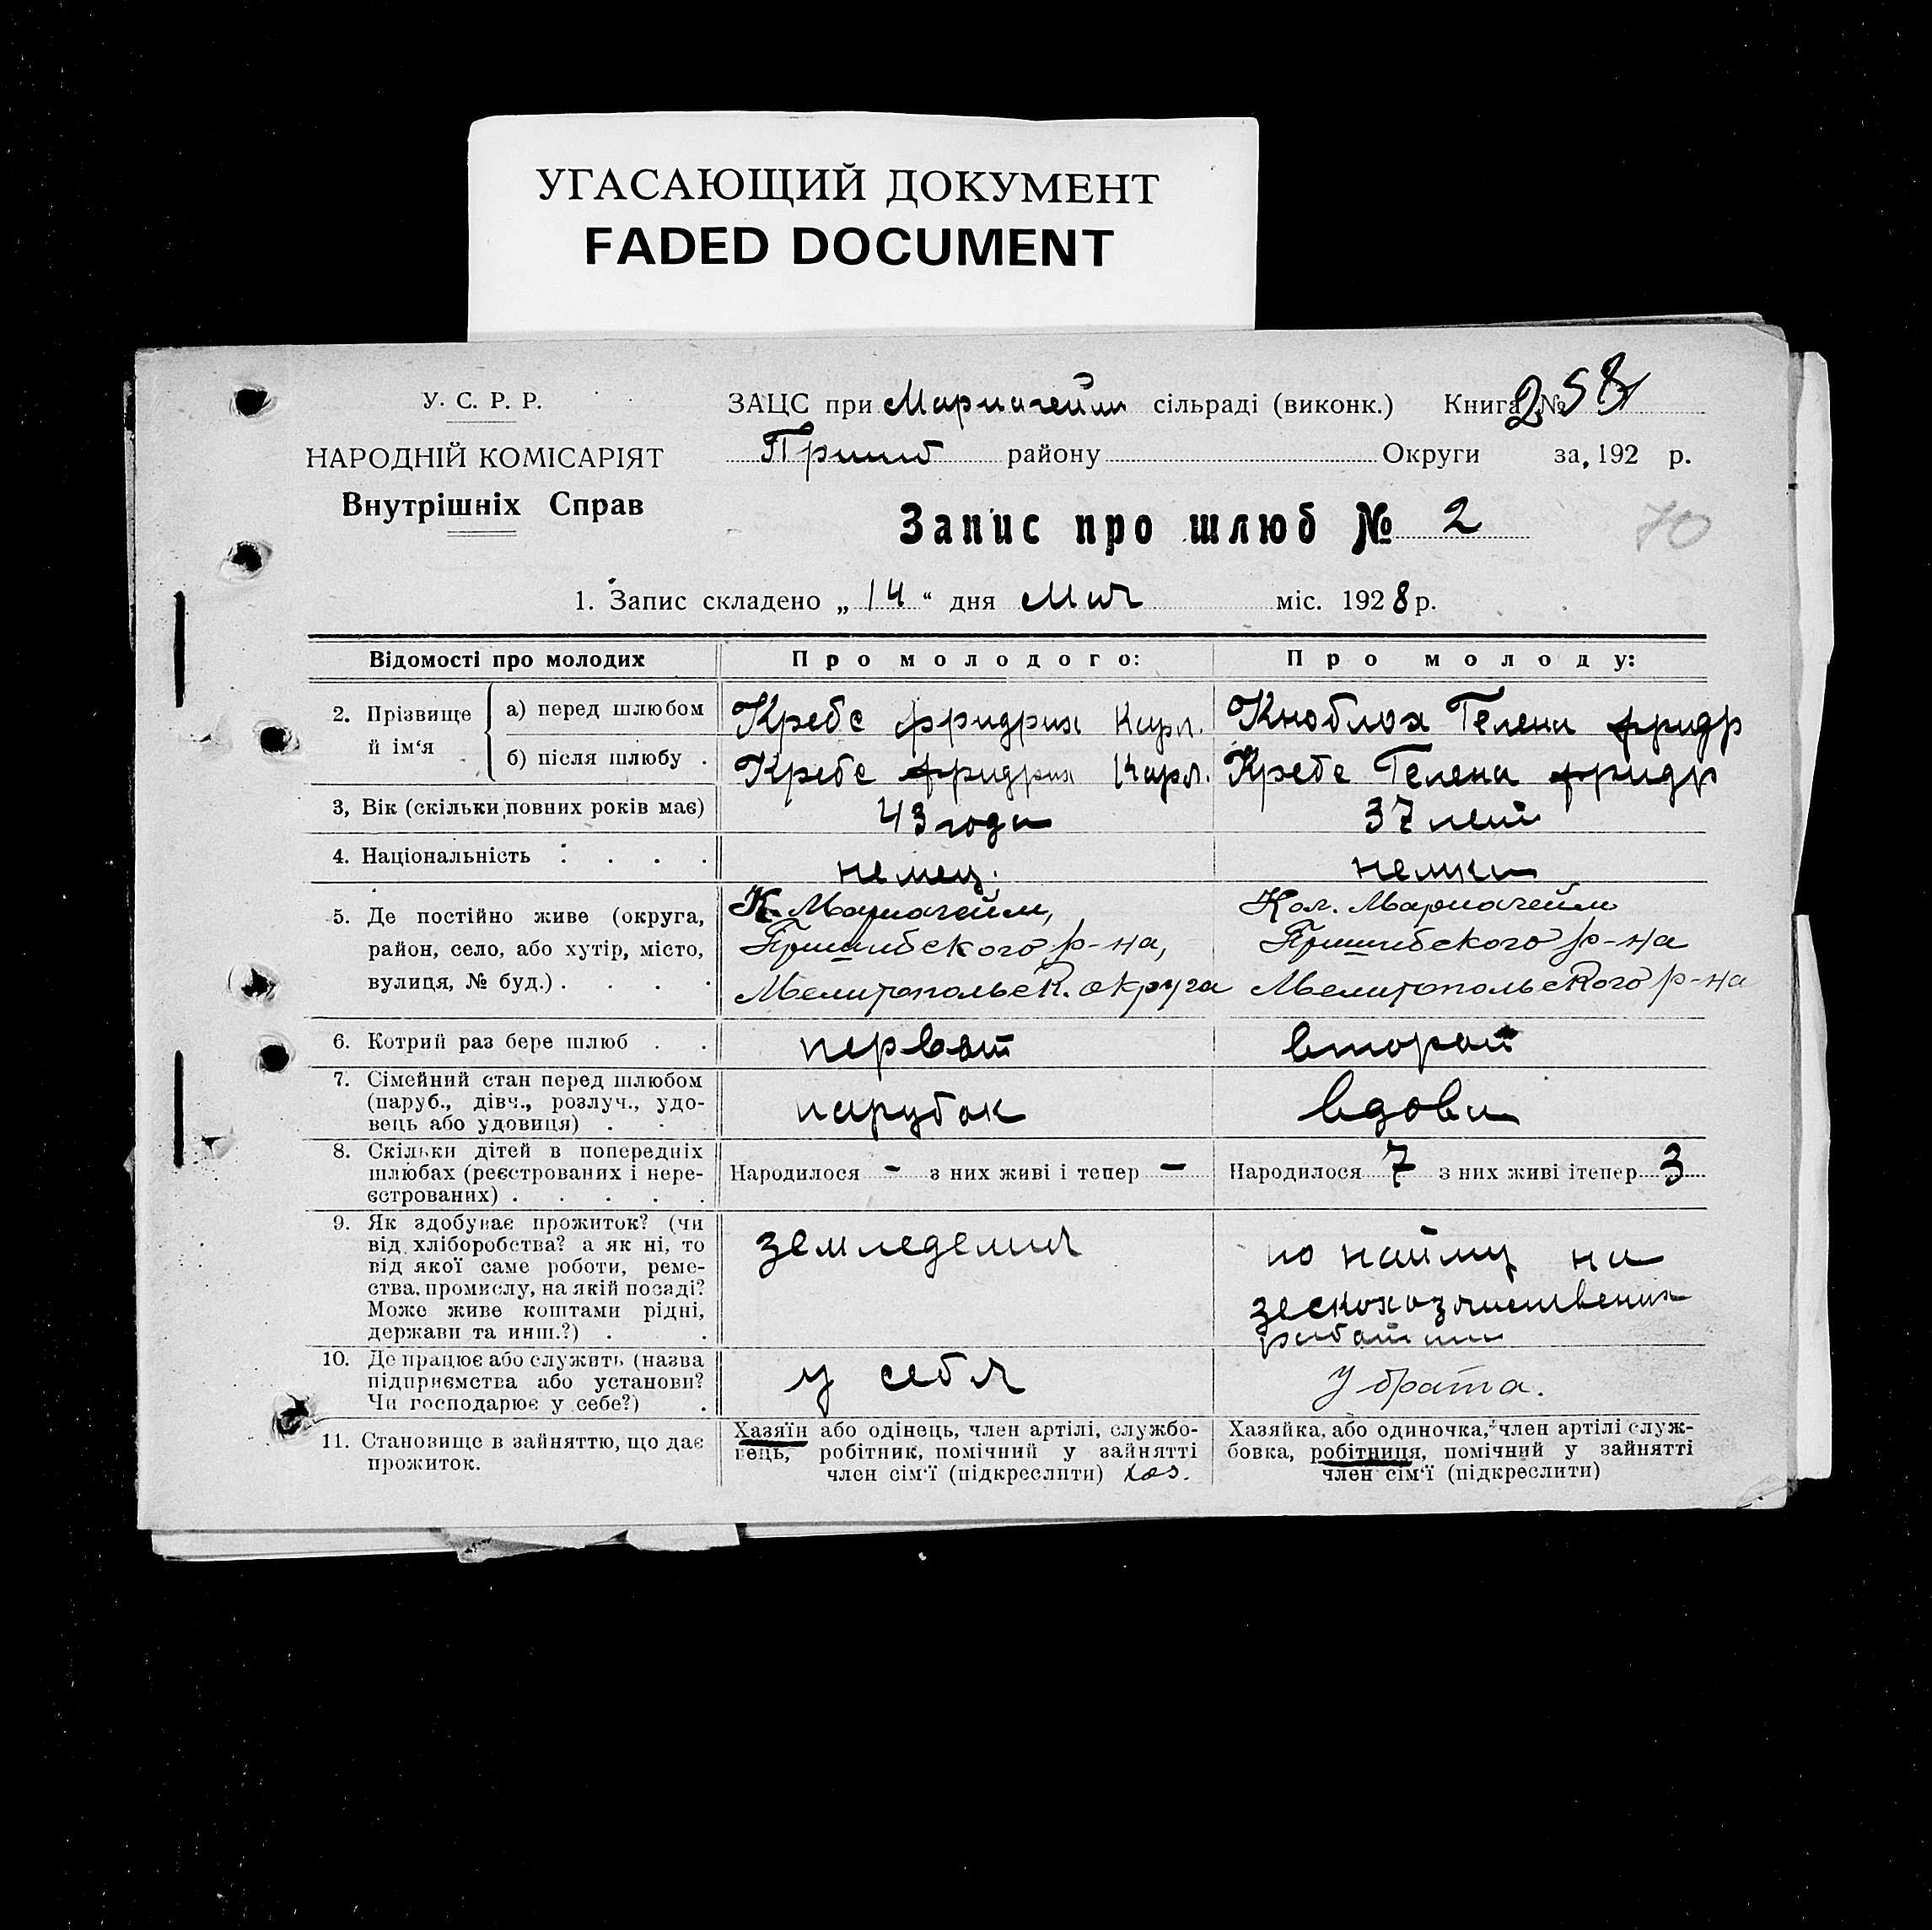 УГАСАЮЩИЙ ДОКУМЕНТ
FADED DOCUMENT
У. С. Р. Р.
НАРОДНІЙ КОМІСАРІЯТ
Внутрішніх Справ
ЗАЦС при Мариагейм сільраді (виконк.) Книга №
Пришиб району Округи за 192 р.
Запис про шлюб № 2
70
1. Запис складено „ 14 “ дня Мая міс. 1928 р.
Відомості про молодих
Про молодого:
Про молоду:
2. Прізвище й ім‘я
а) перед шлюбом
Кребс Фридрих Карл.
Кноблох Гелена Фридр
б) після шлюбу .
Кребс Фридрих Карл.
Кребс Гелена Фридр
3, Вік (скільки повних років має)
43 года
37 лет
4. Національність . . . .
немец.
немка
5. Де постійно живе (округа,
район, село, або хутір, місто,
вулиця, № буд.) . . . .
К. Мариагейм,
Пришибского р-на,
Мелитопольск. округа
Кол. Мариагейм
Пришибского р-на
Мелитопольского р-на
6. Котрий раз бере шлюб . .
первой
второй
7. Сімейний стан перед шлюбом
(паруб., дівч., розлуч., удо-
вець або удовиця) . . .
парубок
вдова
8. Скільки дітей в попередніх
шлюбах (реєстрованих і нере-
єстрованих) . . . . .
Народилося - з них живі і тепер -
Народилося 7 з них живі ітепер 3
9. Як здобуває прожиток? (чи
від хліборобства? а як ні, то
від якої саме роботи, реме-
ства, промислу, на якій посаді?
Може живе коштами рідні,
держави та инш.?) . .
земледелия
по найму на
работах
10. Де працює або служить (назва
підприємства або установи?
Чи господарює у себе?) .
у себя
У брата.
11. Становище в зайняттю, що дає
прожиток.
Хазяїн або одінець, член артілі, службо-
вець, робітник, помічний у зайнятті
член сім‘ї (підкреслити) хоз.
Хазяйка, або одиночка, член артілі служ-
бовка, робітниця, помічний у зайнятті
член сім‘ї (підкреслити)